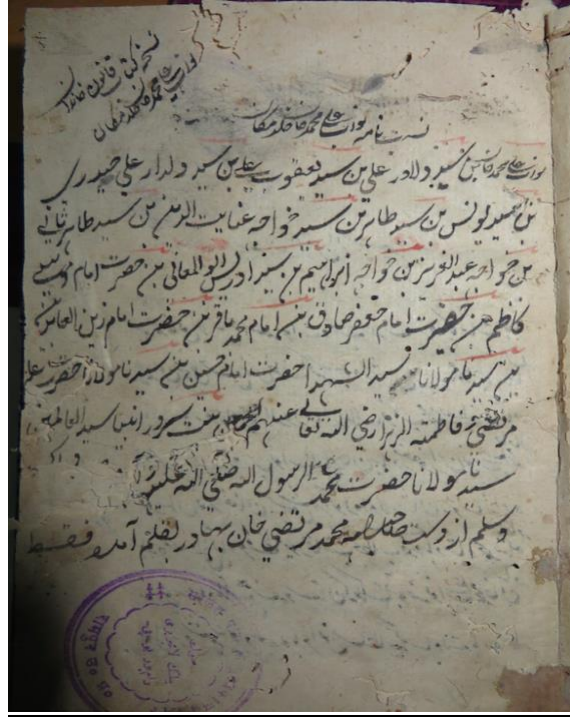 نسخه کتاب قانون خاندان
نواب علی محمد خان خلد مکان
نسب نامه نواب علی محمد خان خلد مکان
نواب علی محمد خان بن سید دلاور علی بن سید یعقوب علی بن سید دلدار علی حیدری
بن سید یونس بن سید طاهر بن سید خواجه عنایت الدین بن سید طاهر ثانی
بن خواجه عبد العزیز بن خواجه ابراهیم بن سید ادریس ابو المعانی بن حضرت امام موسی
کاظم بن حضرت امام جعفر صادق بن امام محمد باقر بن حضرت امام زین العابدین
بن سیدنا مولانا سید الشهدا حضرت امام حسین بن سیدنا مولانا حضرت علی
مرتضی و فاطمة الزهرا رضی الله تعالی عنهم بنت سرور انبیا سید العالمین
سیدنا مولانا حضرت محمد الرسول الله صلی الله علیه
وسلم از دست محمد مرتضی خان بهادر بقلم آمده فقط